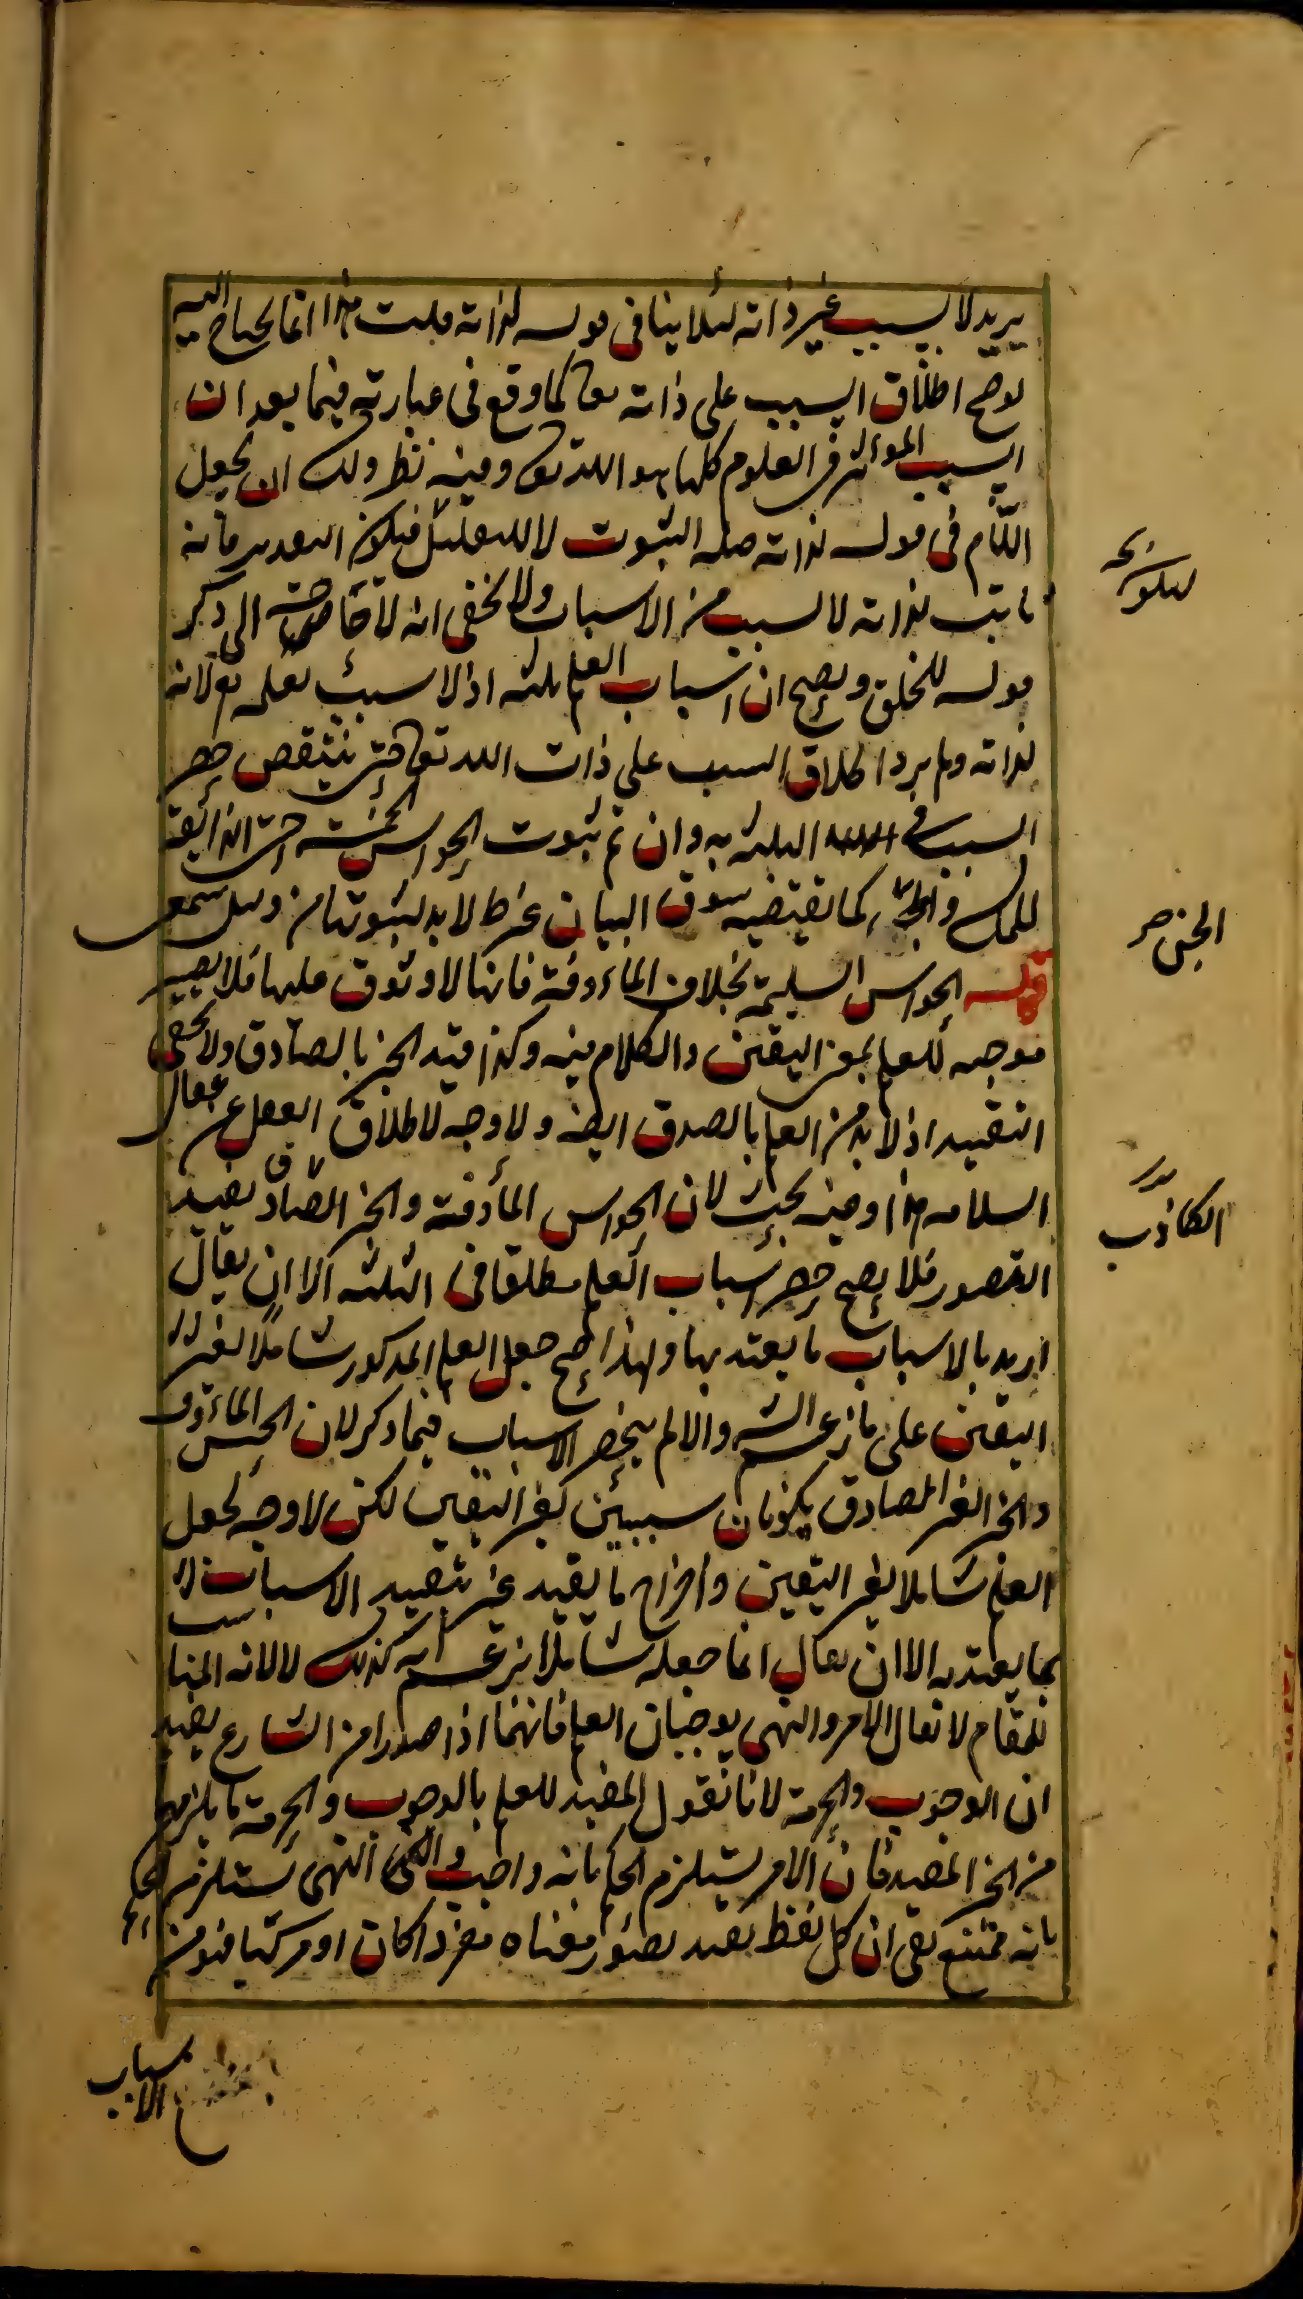 يريد لا بسبب غير ذاته لئلا ينافى قوله لذاته قلت هذا انما يحتاج اليه
لو صح اطلاق السبب على ذاته تعا كما وقع فى عبارته فيما بعد ان
السبب المؤثر فى العلوم كلها هو الله تعا وفيه نظر ولك ان تجعل
اللام فى قوله لذاته صلة الثبوت لا للتعليل فيكون التقدير فانه
ثابت لذاته لا لسبب من الاسباب ولا يخفى انه لا حاجة الى ذكر
قوله للخلق ويصح ان اسباب العلم ثلثه اذ لا سبب لعلمه تع لانه
لذاته ولم يرد اطلاق السبب على ذات الله تعا حتى ينتقص حصر
السبب فى الثلثه به وان تم ثبوت الحواس الخمسة حتى الذائقة
للملك والجن كما يقتضيه سوق البيان عن ط لا بد لثبوتها من دليل سمعى
قوله الحواس السليمة بخلاف الماءوفة فانها لا وثوق عليها فلا يصير
موجبه للعلم بمعنى اليقين والكلام فيه وكذا قيد الخبر بالصادق ولا يخفى
التقييد اذ لا بد من العلم بالصدق ايضا ولا وجه لاطلاق العقل عن
السلامه هذا وفيه بحث لان الحواس المأوفة والخبر الصادق يفيد
التصور فلا يصح حصر اسباب العلم مطلقا فى الثلثه الا ان يقال
اريد بالاسباب ما يعتد بها ولهذا صح جعل العلم المذكور شاملا لغير
اليقين على ما زعم الش والا لم ينحصر الاسباب فيما ذكر لان الحس الماءوف
والخبر الغير الصادق يكونان سببين لغير اليقين لكن لا وجه لجعل
العلم شاملا لغير اليقين واخراج ما يفيد غير بتقييد الاسباب
بما يعتد به الا ان يقال انما جعله شاملا لزعم انه كذلك لا لانه المناسب
للمقام لا يقال الامر والنهى يوجبان العلم فانهما اذا صدرا من الشارع يفيد
ان الوجوب والحرمة لانا نقول المفيد للعلم بالوجوب والحرمة ما يلزمهما
من الخبر المفيد فان الامر يستلزم الحكم بانه واجب والنهى يستلزم الحكم
بانه ممتنع بقى ان كل لفظ يفيد تصور معناه مفردا كان او مركبا فهو من
الكاذب
اسباب